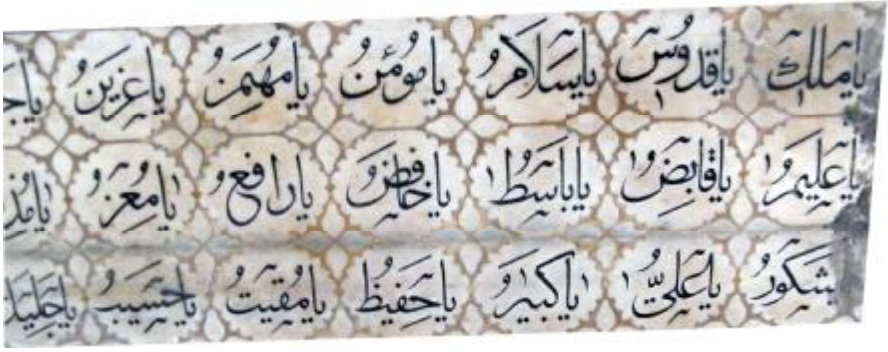 ياملك ياقدوس ياسلام يامؤمن يامهيمن ياعزيز
ياعليم ياقابض ياباسط ياخافض يارافع يامعز
شكور ياعلي ياكبير ياحفيظ يامقيت ياحسيب ياجليل